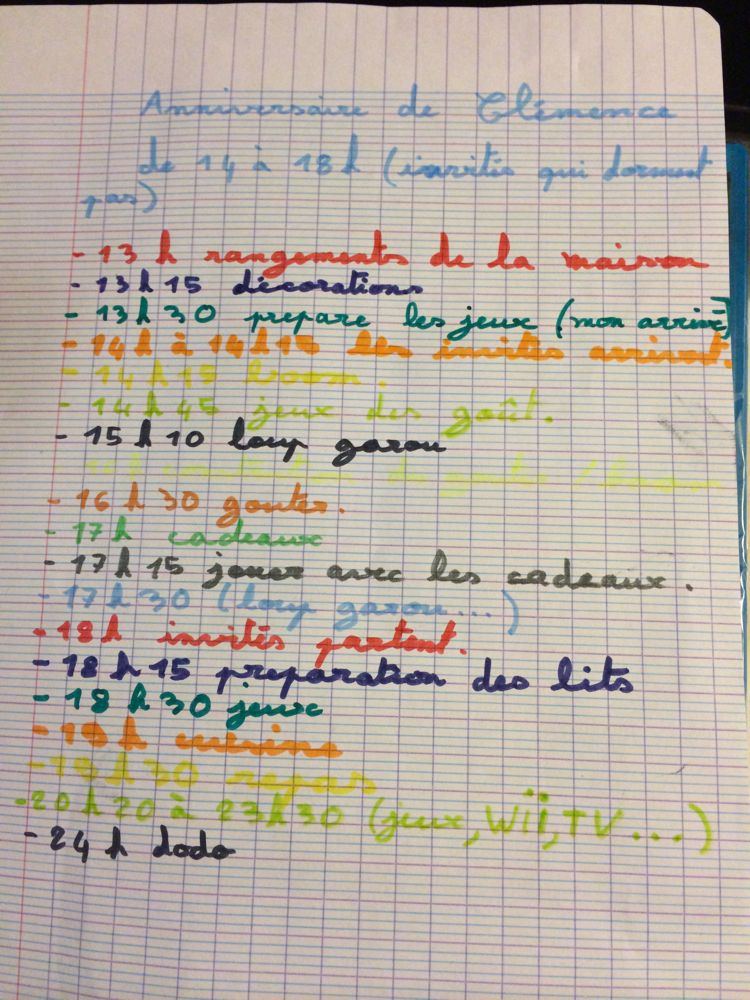 Anniversaire de Clémence
de 14 à 18h (invités qui dorment
pas)
- 13 h rangements de la maison
- 13 h 15 décorations
- 13 h 30 prepare les jeux (mon arrivé)
- 14h à 14h15 les invités arrivent.
- 14 h 15 boom.
- 14 h 45 jeux des goût.
- 15 h 10 loup garou
- 16 h 30 gouter.
- 17 h cadeaux
- 17 h 15 jouer avec les cadeaux.
- 17 h 30 (loup garou...)
- 18 h invités partent.
- 18 h 15 preparation des lits
- 18 h 30 jeux
- 19 h cuisine
- 19 h 30 repas
- 20 h 20 à 23h30 (jeux, Wii, TV...)
- 24 h dodo